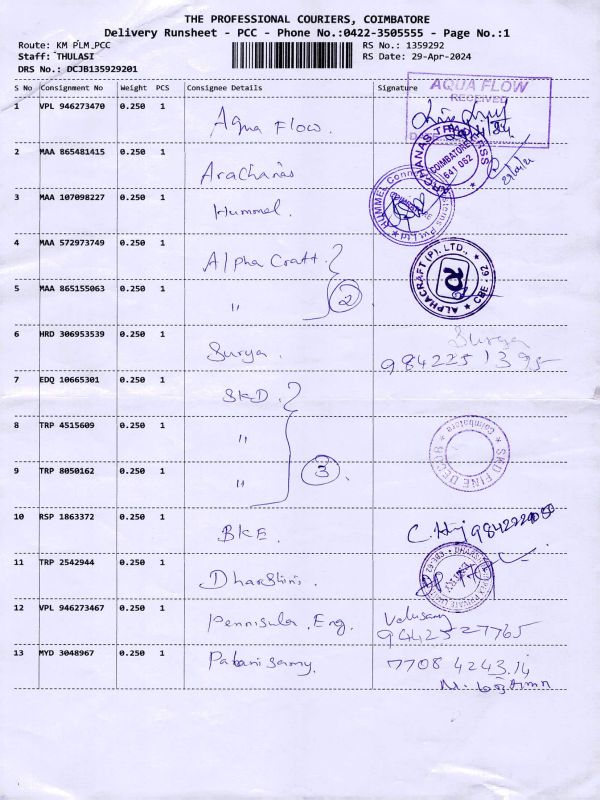 THE PROFESSIONAL COURIERS, COIMBATORE
Delivery Runsheet - PCC - Phone No.:0422-3505555 - Page No.:1
Route: KM PLM_PCC RS No.: 1359292
Staff: THULASI RS Date: 29-Apr-2024
DRS No.: DCJB135929201
S No Consignment No Weight PCS Consignee Details Signature
AQUA FLOW
RECEIVED
1 VPL 946273470 0.250 1 Aqua Flow.
2 MAA 865481415 0.250 1 Arachanas
COIMBATORE
641 062
3 MAA 107098227 0.250 1 Hummel.
4 MAA 572973749 0.250 1 Alpha Craft.
ALPHACRAFT (P). LTD., CBE - 62
5 MAA 865155063 0.250 1 " 2
6 HRD 306953539 0.250 1 Surya. Surya
9842251395
7 EDQ 10665301 0.250 1 SKD.
8 TRP 4515609 0.250 1 "
SKD FINE DECOR Coimbatore
9 TRP 8050162 0.250 1 " 3
10 RSP 1863372 0.250 1 BKE.
11 TRP 2542944 0.250 1 Dharshini.
12 VPL 946273467 0.250 1 Pennisula. Eng. Velusamy
9442527765
13 MYD 3048967 0.250 1 Palanisamy. 7708 4243 14